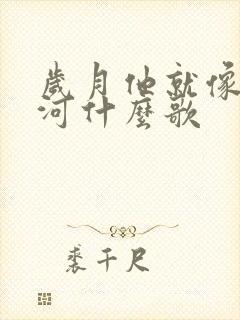 歲月他就像
河什麼歌
裘千尺